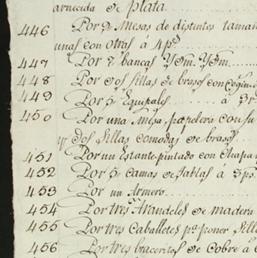 arnecida de plata
446 Por 2 Mesas de distintos tamañ
unas con otras á 4 ps
447 Por 2 bancas Ydm. Ydm.
448 Por dos sillas de brasos con
449 Por 5 Equipales á 5r
450 Por una Mesa papelera con su
y dos Sillas comodas de brasos
451 Por un Estante pintado con Chapa y
452 Por 5 camas de tablas á 3 ps
453 Por un Armero
454 Por tres Arandeles de madera
455 Por tres Caballetes pa poner Sill
456 Por tres braceritos de Cobre á